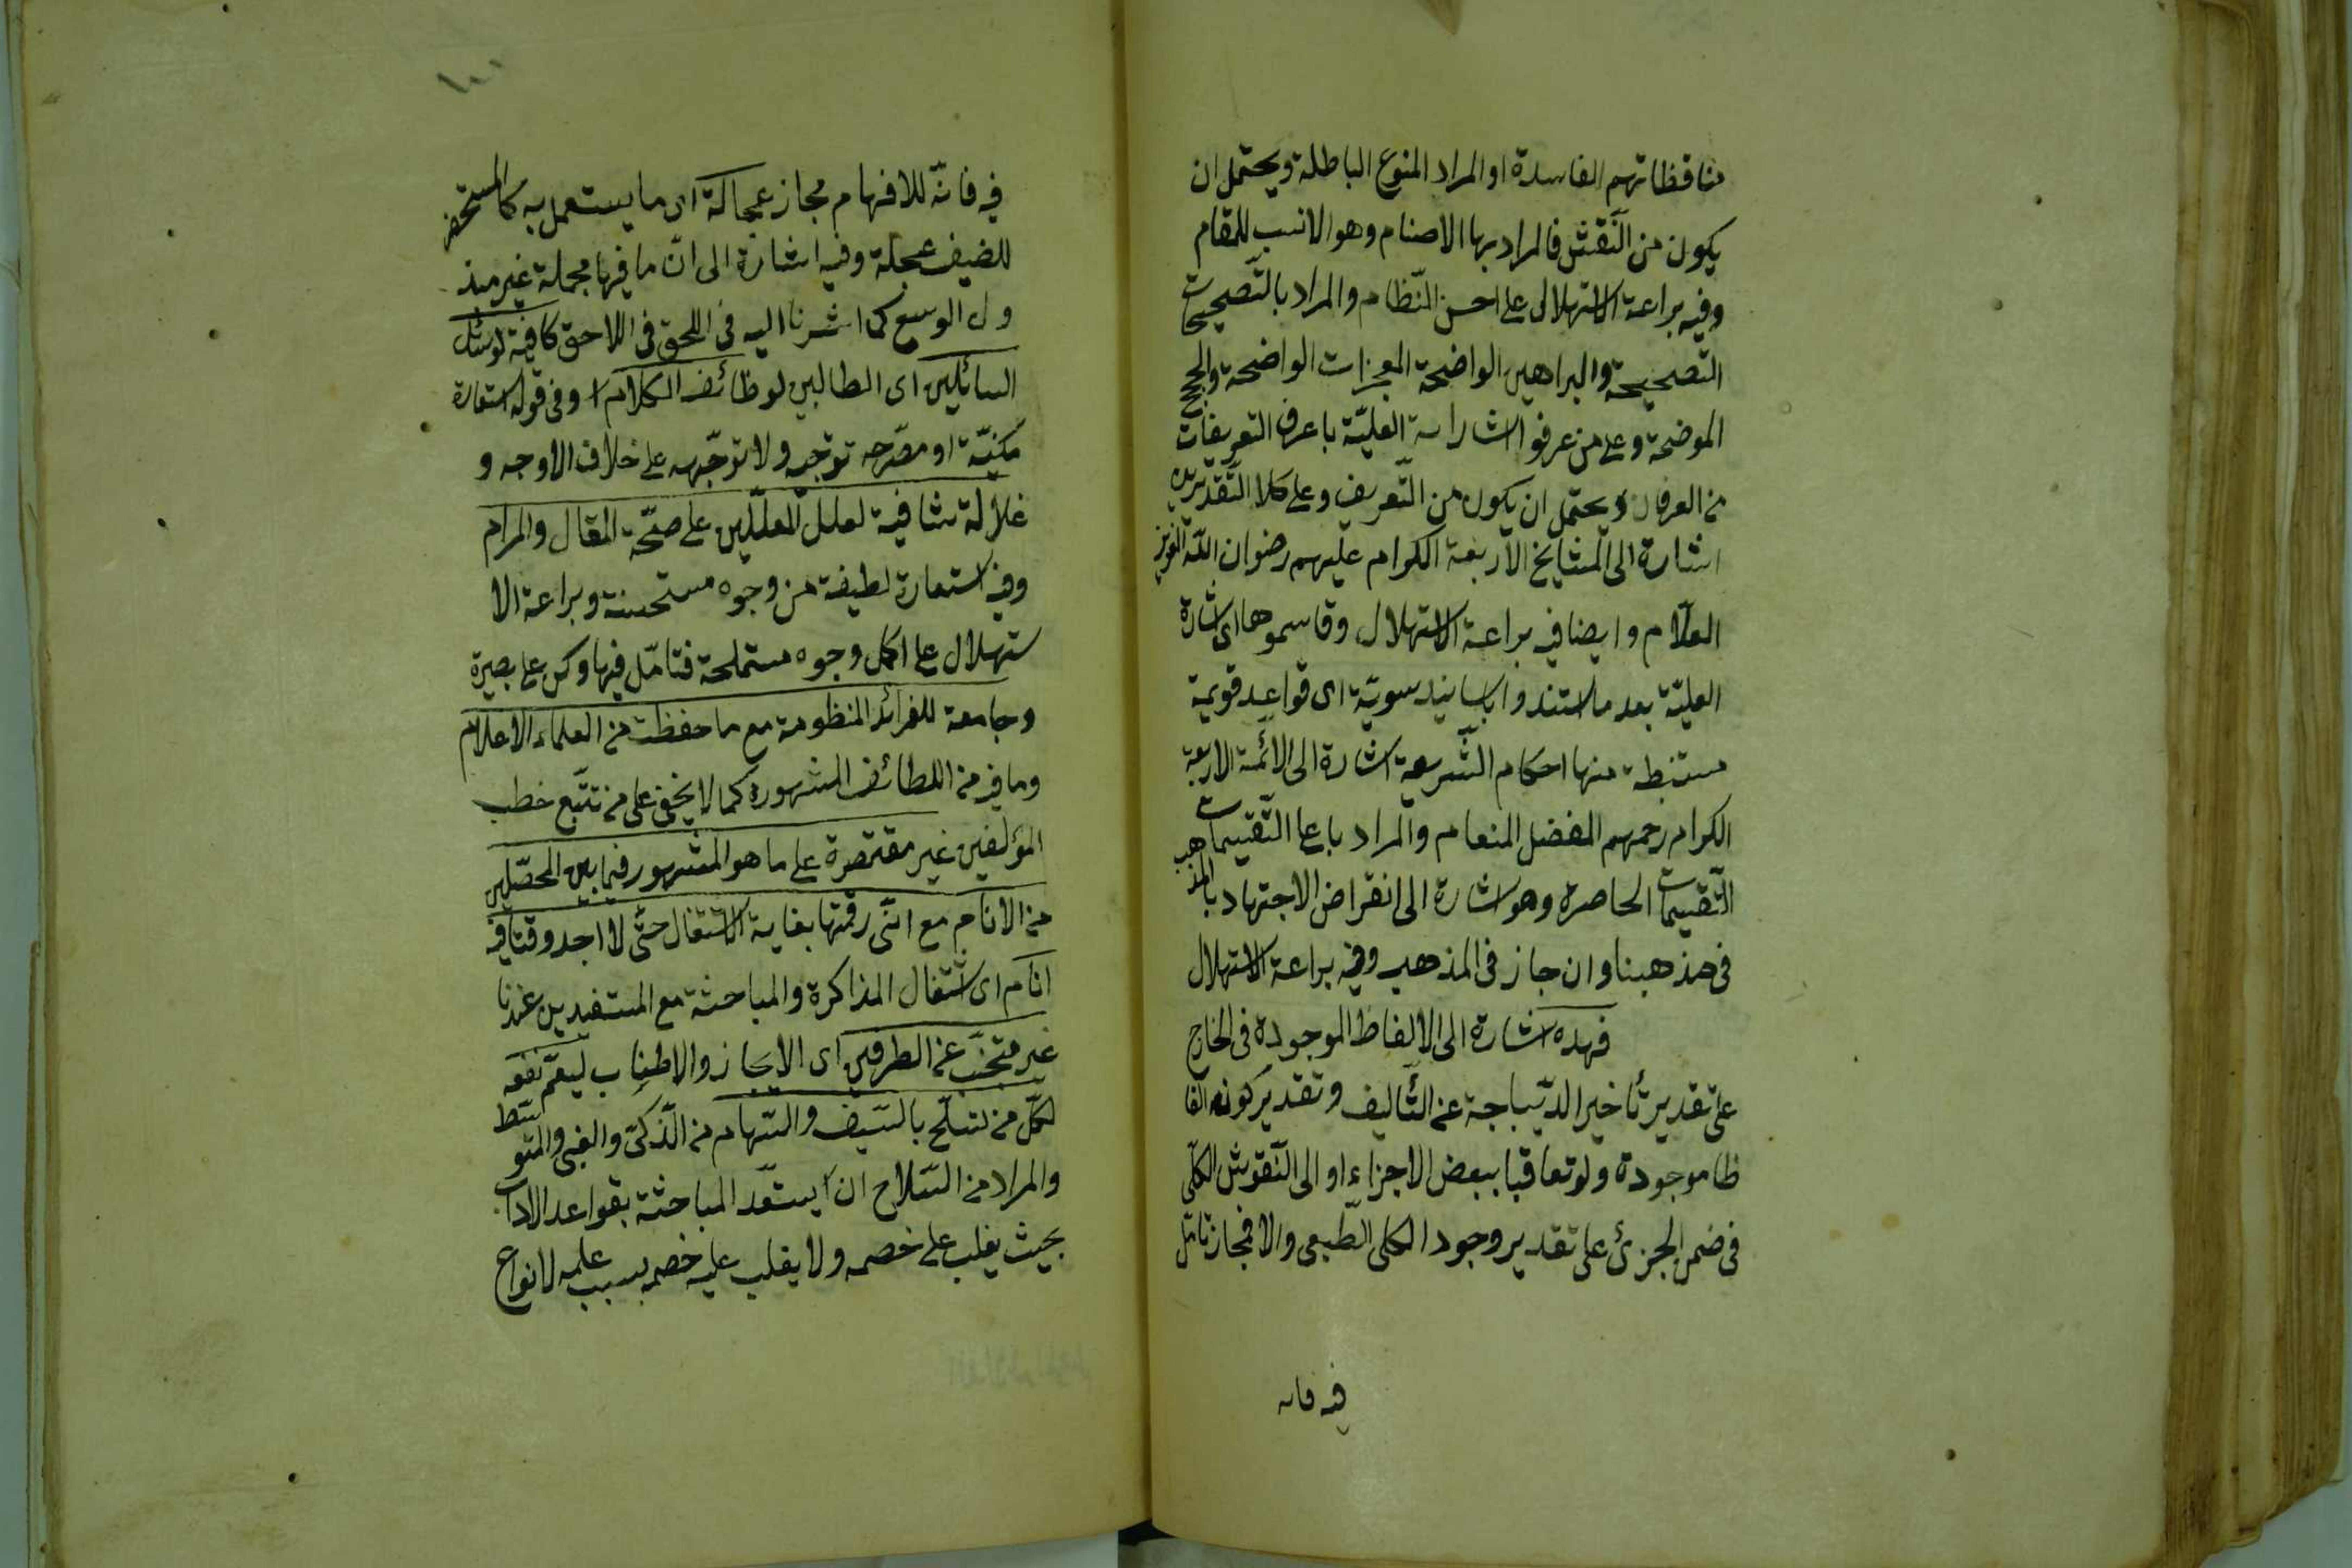 مناقظاتهم الفاسدة او المراد المنوع الباطلة ويحتمل ان
يكون من النّقش فالمراد بها الاصنام وهو الانسب للمقام
وفيه براعة الاستهلال على احسن النّظام والمراد بالتّصحيحات
التّصحيحة والبراهين الواضحة المعجزات الواضحة والحجج
الموضحة وعلى من عرفوا اشاراته العليّة باعرف التعريفات
من العرفان ويحتمل ان يكون من التّعريف وعلى كلا التّقديرين
اشارة الى المشايخ الاربعة الكرام عليهم رضوان اللّه العزيز
العلّام وايضا فيه براعة الاستهلال وقاسموها اى اشارة
العليّة بعد ما استندوا باسانيد سويّة اى قواعد قويمة
مستنبطة منها احكام الشّريعة اشارة الى الائمّة الاربعة
الكرام رحمهم المفضل المنعام والمراد باعا التّقسيمات
التّقسيمات الحاصرة وهو اشارة الى انقراض الاجتهاد بالمذهب
فى مذهبنا وان جاز فى المذهب وفيه براعة الاستهلال
فهذه اشارة الى الالفاظ الموجودة فى الخارج
على تقدير تأخير الدّيباجة عن التّأليف وتقدير كونه الفا
ظا موجودة ولو تعاقبا ببعض الاجزاء او الى النّقوش الكلّى
فى ضمن الجزئ على تقدير وجود الكلى الطّبعى والا فمجاز تامّل
فيه فانه
١٠١
فيه فانّه للافهام مجاز عجالة اى ما يستعمل به كالمستحضر
للضيف عجلة وفيه اشارة الى انّ ما فيها مجملة غير مبذ
ول الوسع كما اشرنا اليه فى اللحق فى اللاحق كافية لوسائل
السائلين اى الطالبين لوظائف الكلام وفى قوله استعارة
مكنيّة او مصّرحه توجّه ولا توجّهه على خلاف الاوجه و
غلالة شافية لعلل المعلّلين على صحّة المقال والمرام
وفيه استعارة لطيفة من وجوه مستحسنة وبراعة الا
ستهلال على اكمل وجوه مستملحة فتامّل فيها وكن على بصيرة
وجامعة للفرائد المنظومة مع ما حفظت من العلماء الاعلام
وما فيه من اللطائف المشهورة كما لا يخفى على من تتبّع خطب
المؤلفين غير مقتصرة على ما هو المشهور فيما بين المحصّلين
من الانام مع انّى رقمتها بغاية الاشتغال حتّى لا اجد وقتا فيه
انام اى اشتغال المذاكرة والمباحثة مع المستفيدين عندنا
غير متجنّب عن الطرفين اى الايجاز والاطناب ليعمّ نفعه
لكلّ من تسلّح بالسّيف والسّهام من الّذكىّ والغبى والمتوسّط
والمراد من السّلاح ان يستعّد المباحثة بقواعد الاداب
بحيث يغلب على خصمه ولا يغلب عليه خصمه بسبب علمه لانواع